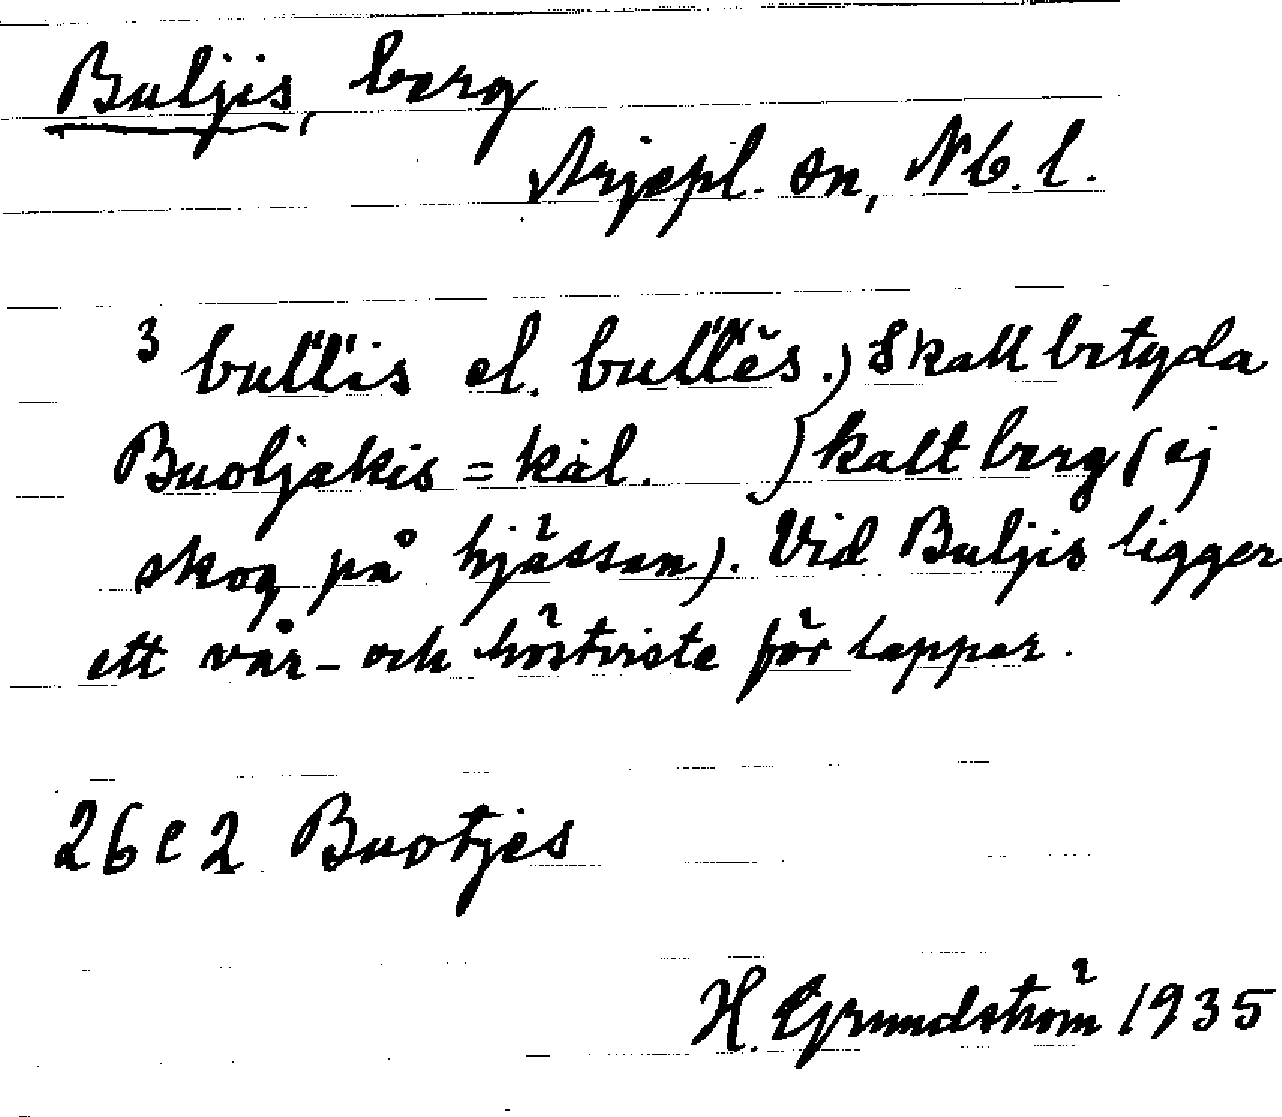 Buljis, berg
Arjepl. sn, Nb. l.
3 bulľľis el. bulľľĕs.) Skall betyda
Buoljakis = kal. ) kalt berg (ej
skog på hjässan). Vid Buljis ligger
ett vår- och höstviste för lappar.
26 e 2 Buotjes
H. Grundström 1935